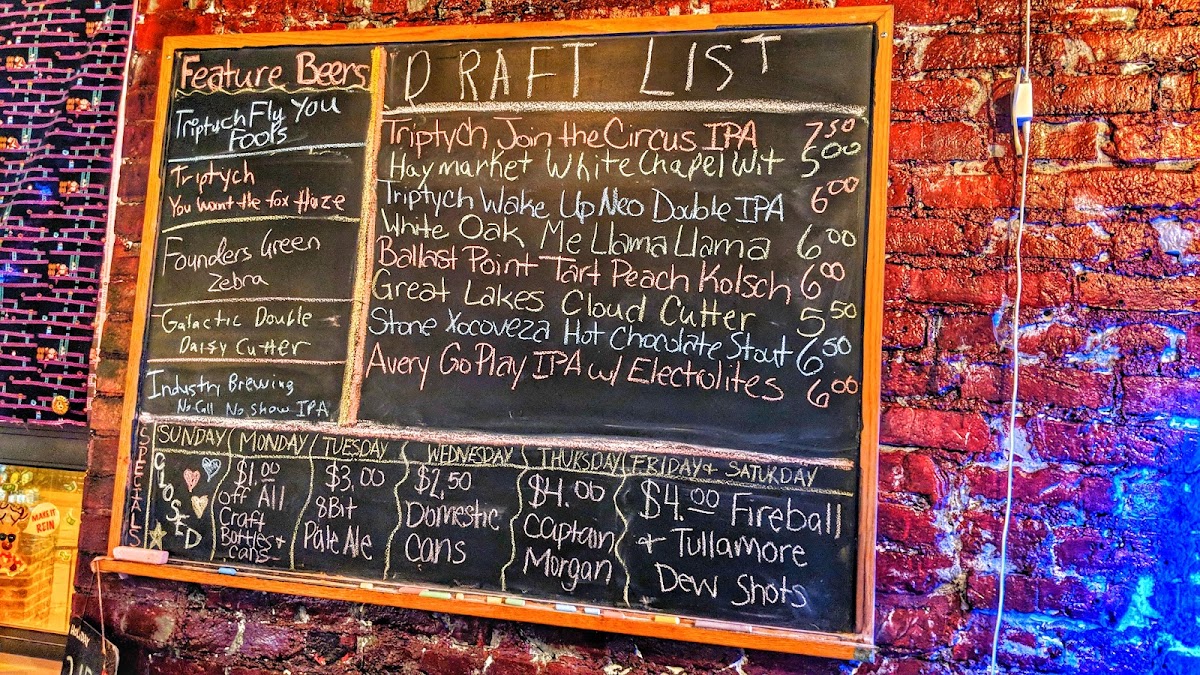 Feature Beers
Triptych Fly You
Fools
Triptych
You Want the fox Haze
Founders Green
Zebra
Galactic Double
Daisy Cutter
Industry Brewing
No Call No Show IPA
DRAFT LIST
Triptych Join the Circus IPA 7.50
Haymarket White Chapel Wit 5.00
Triptych Wake Up Neo Double IPA 6.00
White Oak Me Llama Llama 6.00
Ballast Point Tart Peach Kolsch 6.00
Great Lakes Cloud Cutter 5.50
Stone Xocoveza Hot Chocolate Stout 6.50
Avery Go Play IPA w/ Electrolites 6.00
SPECIALS
SUNDAY
CLOSED
MONDAY
$1.00
off All
Craft
Bottles +
cans
TUESDAY
$3.00
8Bit
Pale Ale
WEDNESDAY
$2.50
Domestic
Cans
THURSDAY
$4.00
Captain
Morgan
FRIDAY + SATURDAY
$4.00 Fireball
+ Tullamore
Dew Shots
MAKE IT
REIN